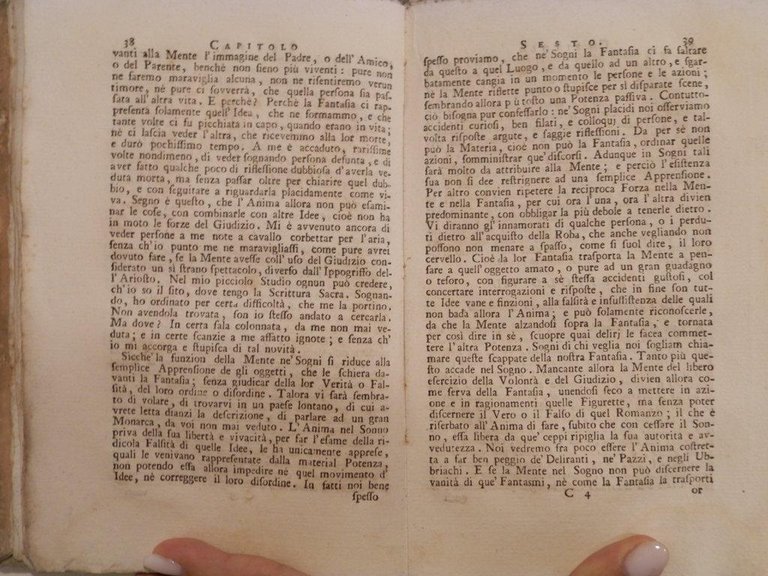 38 CAPITOLO
vanti alla Mente l'immagine del Padre, o dell'Amico,
o del Parente, benchè non sieno più viventi: pure non
ne faremo maraviglia alcuna, non ne risentiremo verun
timore, nè pure ci sovverrà, che quella persona sia pas-
sata all'altra vita. E perchè? Perchè la Fantasia ci rap-
presenta solamente quell'Idea, che ne formammo, e che
tante volte ci fu picchiata in capo, quando erano in vita;
nè ci lascia veder l'altra, che ricevemmo alla lor morte,
e durò pochissimo tempo. A me è accaduto, rarissime
volte nondimeno, di veder sognando persona defunta, e di
aver fatto qualche poco di riflessione dubbiosa d'averla ve-
duta morta, ma senza passar oltre per chiarire quel dub-
bio, e con seguitare a riguardarla placidamente come vi-
va. Segno è questo, che l'Anima allora non può esami-
nar le cose, con combinarle con altre Idee, cioè non ha
in moto le forze del Giudizio. Mi è avvenuto ancora di
veder persone a me note a cavallo corbettar per l'aria,
senza ch'io punto me ne maravigliassi, come pure avrei
dovuto fare, se la Mente avesse coll'uso del Giudizio con-
siderato un sì strano spettacolo, diverso dall'Ippogrifo del-
l'Ariosto. Nel mio picciolo Studio ognun può credere,
ch'io so il sito, dove tengo la Scrittura Sacra. Sognan-
do, ho ordinato per certa difficoltà, che me la portino.
Non avendola trovata, son io stesso andato a cercarla.
Ma dove? In certa sala colonnata, da me non mai ve-
duta; e in certe scanzie a me affatto ignote; e senza ch'io
mi accorga e stupisca di tal novità.
Sicchè la funzioni della Mente ne' Sogni si riduce alla
semplice Apprensione de gli oggetti, che le schiera da-
vanti la Fantasia; senza giudicar della lor Verità o Fal-
sità, del loro ordine o disordine. Talora vi farà sembra-
to di volare, di trovarvi in un paese lontano, di cui a-
vrete letta dianzi la descrizione, di parlare ad un gran
Monarca, da voi non mai veduto. L'Anima nel Sonno
priva della sua libertà e vivacità, per far l'esame della ri-
dicola Falsità di quelle Idee, le ha unicamente apprese,
quali le venivano rappresentate dalla material Potenza,
non potendo essa allora impedire nè quel movimento d'
Idee, nè correggere il loro disordine. In fatti noi bene
spesso
SESTO. 39
spesso proviamo, che ne' Sogni la Fantasia ci fa saltare
da questo a quel Luogo, e da quello ad un altro, e sgar-
batamente cangia in un momento le persone e le azioni;
nè la Mente riflette punto o stupisce per sì disparate scene,
sembrando allora più tosto una Potenza passiva. Contutto-
ciò bisogna pur confessarlo: ne' Sogni placidi noi osserviamo
accidenti curiosi, ben filati, e colloquj di persone, e tal-
volta risposte argute, e saggie riflessioni. Da per sè non
può la Materia, cioè non può la Fantasia, ordinar quelle
azioni, somministrar que' discorsi. Adunque in Sogni tali
sarà molto da attribuire alla Mente; e perciò l'esistenza
sua non si dee restrignere ad una semplice Apprensione.
Per altro convien ripetere la reciproca Forza nella Men-
te e nella Fantasia, per cui ora l'una, ora l'altra divien
predominante, con obbligar la più debole a tenerle dietro.
Vi diranno gl'innamorati di qualche persona, o i perdu-
ti dietro all'acquisto della Roba, che anche vegliando non
possono non menare a spasso, come si suol dire, il loro
cervello. Cioè la lor Fantasia trasporta la Mente a pen-
sare a quell'oggetto amato, o pure ad un gran guadagno
o tesoro, con figurare a sè stessa accidenti gustosi, col
concertare interrogazioni e risposte, che in fine son tut-
te Idee vane e finzioni, alla falsità e insussistenza delle quali
non bada allora l'Anima; e può solamente riconoscerle,
da che la Mente alzandosi sopra la Fantasia, e tornata
per così dire in sè, scuopre quai deliri le facea commet-
tere l'altra Potenza. Sogni di chi veglia noi sogliam chia-
mare queste scappate della nostra Fantasia. Tanto più que-
sto accade nel Sogno. Mancante allora la Mente del libero
esercizio della Volontà e del Giudizio, divien allora co-
me serva della Fantasia, unendosi seco a mettere in azio-
ne e in ragionamenti quelle Figurette, ma senza poter
discernere il Vero o il Falso di quel Romanzo; il che è
riserbato all'Anima di fare, subito che con cessare il Son-
no, essa libera da que' ceppi ripiglia la sua autorità e av-
vedutezza. Noi vedremo fra poco essere l'Anima costret-
ta a far ben peggio de' Deliranti, ne' Pazzi, e negli Ub-
briachi. E se la Mente nel Sogno non può discernere la
vanità di que' Fantasmi, nè come la Fantasia la trasporti
C 4 or